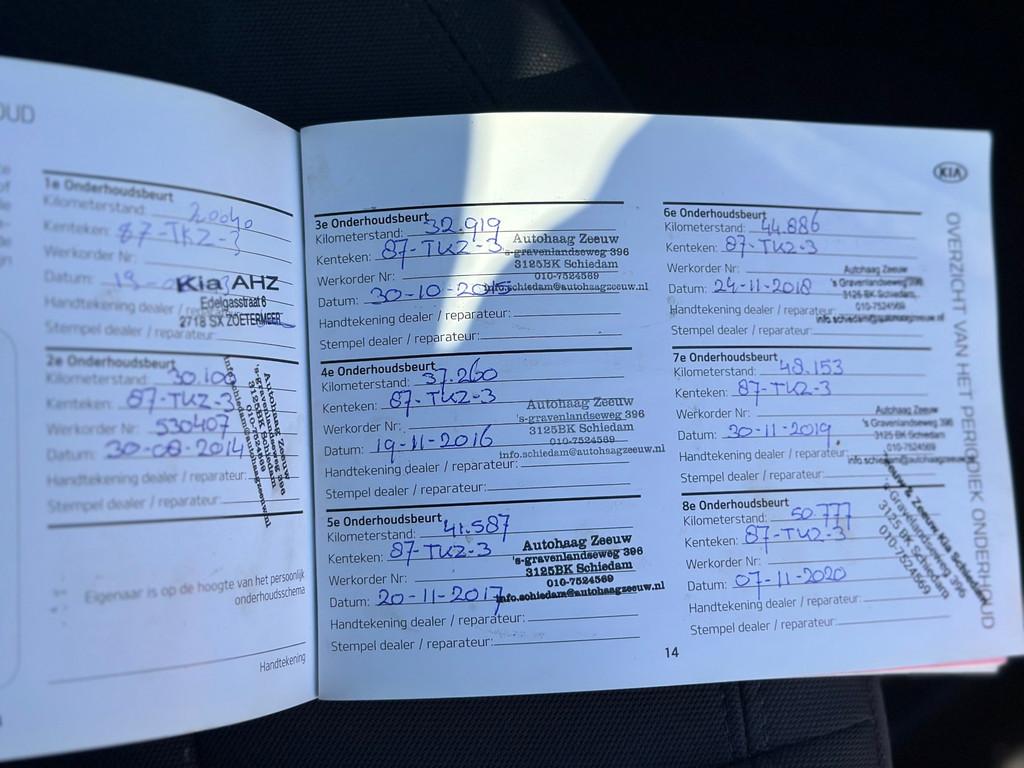 OUD
1e Onderhoudsbeurt
Kilometerstand: 20040
Kenteken: 87-TKZ-3
Werkorder Nr:
Datum: 19-
Kia AHZ
Edelgasstraat 6
2718 SX ZOETERMEER
Handtekening dealer /
Stempel dealer / reparateur:
2e Onderhoudsbeurt
Kilometerstand: 30.100
Kenteken: 87-TKZ-3
Werkorder Nr: 530407
Datum: 30-08-2014
Handtekening dealer / reparateur:
Stempel dealer / reparateur:
Autohaag Zeeuw
's-gravenlandseweg 396
3125BK Schiedam
010-7524569
info.schiedam@autohaagzeeuw.nl
Eigenaar is op de hoogte van het persoonlijk
onderhoudsschema
Handtekening
3e Onderhoudsbeurt
Kilometerstand: 32.919
Kenteken: 87-TKZ-3
Werkorder Nr:
Datum: 30-10-2015
Handtekening dealer / reparateur:
Stempel dealer / reparateur:
Autohaag Zeeuw
's-gravenlandseweg 396
3125BK Schiedam
010-7524569
info.schiedam@autohaagzeeuw.nl
4e Onderhoudsbeurt
Kilometerstand: 37.260
Kenteken: 87-TKZ-3
Werkorder Nr:
Datum: 19-11-2016
Handtekening dealer / reparateur:
Stempel dealer / reparateur:
Autohaag Zeeuw
's-gravenlandseweg 396
3125BK Schiedam
010-7524569
info.schiedam@autohaagzeeuw.nl
5e Onderhoudsbeurt
Kilometerstand: 41.587
Kenteken: 87-TKZ-3
Werkorder Nr:
Datum: 20-11-2017
Handtekening dealer / reparateur:
Stempel dealer / reparateur:
Autohaag Zeeuw
's-gravenlandseweg 396
3125BK Schiedam
010-7524569
info.schiedam@autohaagzeeuw.nl
6e Onderhoudsbeurt
Kilometerstand: 44.886
Kenteken: 87-TKZ-3
Werkorder Nr:
Datum: 24-11-2018
Handtekening dealer / reparateur:
Stempel dealer / reparateur:
Autohaag Zeeuw
's Gravelandseweg 396
3125 BK Schiedam
010-7524569
info.schiedam@autohaagzeeuw.nl
7e Onderhoudsbeurt
Kilometerstand: 48.153
Kenteken: 87-TKZ-3
Werkorder Nr:
Datum: 30-11-2019
Handtekening dealer / reparateur:
Stempel dealer / reparateur:
Autohaag Zeeuw
's Gravelandseweg 396
3125 BK Schiedam
010-7524569
info.schiedam@autohaagzeeuw.nl
8e Onderhoudsbeurt
Kilometerstand: 50.777
Kenteken: 87-TKZ-3
Werkorder Nr:
Datum: 07-11-2020
Handtekening dealer / reparateur:
Stempel dealer / reparateur:
& Zeeuw Kia Schiedam
's Gravelandseweg 396
3125 BK Schiedam
010-7524569
14
KIA
OVERZICHT VAN HET PERIODIEK ONDERHOUD